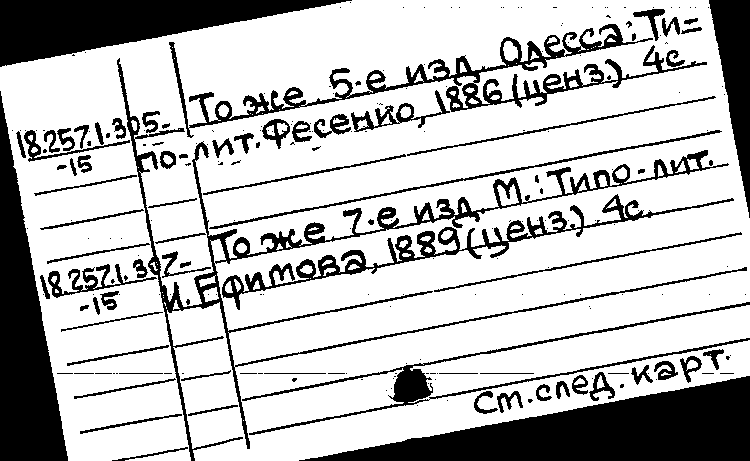 То же. 5-е изд. Одесса: Ти=
18.257.1.305- по-лит. Фесенко, 1886 (ценз.). 4с.
-15
То же. 7-е изд. М.: Типо-лит.
18.257.1.307- И. Ефимова, 1889 (ценз.). 4с.
-15
Ст. след. карт.